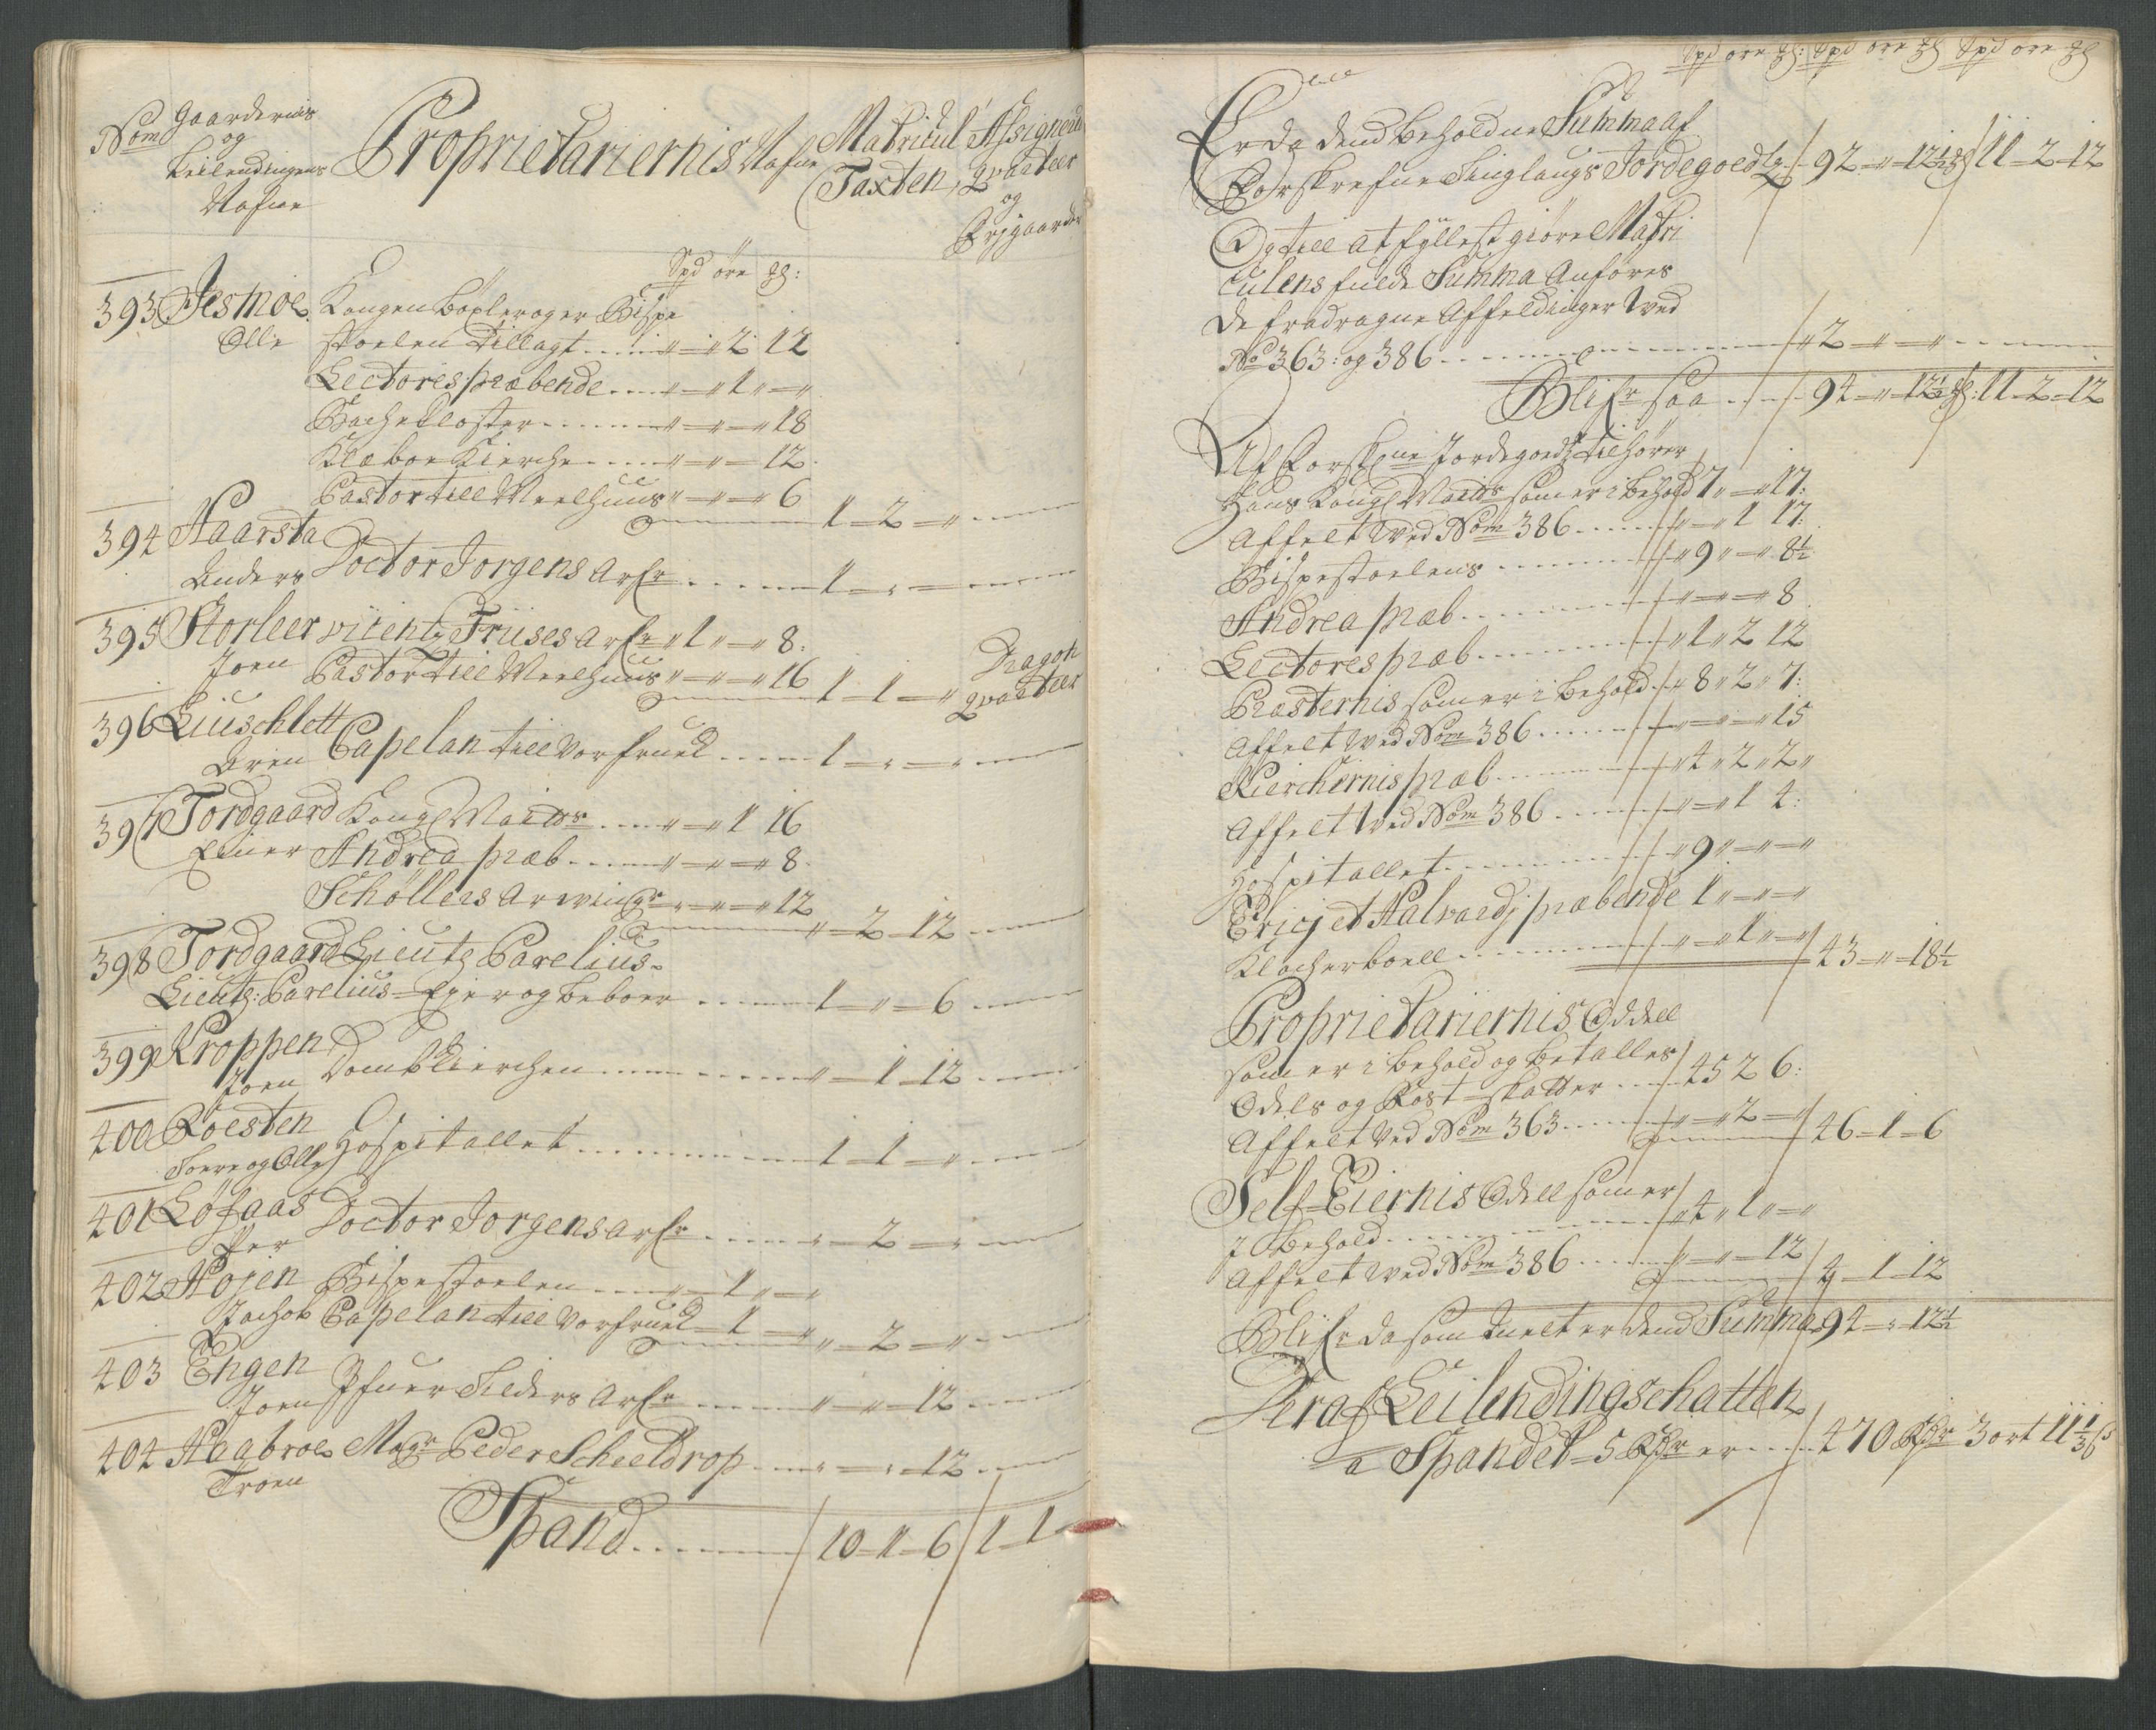 Nom
Gaardernis
og
Leilendingens
Nafne
Proprietariernis Nafne
Matricul
Taxten,
Assignerede
qvarteer
og
Frijgaarder
Spd öre
393 Jesmoe Kongen böxler og er Bispe
Olle stoelen tillagt 2 12
Lectores præbende 1
Bache Closter 18
Klæboe Kierche 12
Pastor till Meelhuus 6
1 2
394 Haarsta
Anders Doctor Jorgens arfr 1
395 Storleer vicentz Friises arfr 1 8
Joen Pastor till Meelhuus 16 1 1 Dragon
qvarteer
396 Liuschlett
Aren Capelan till vor frued 1
397 Tordgaard Kongl Maits 1 16
Einer Andrea præb 8
Schöllers arvingr 12
2 12
398 Tordgaard Lieutz Parelius
Lieutz: Parelius Eyer og beboer 1 6
399 Kroppen
Joen Domb Kierchen 1 12
400 Roesten
Soere og Olle Hospitallet 1 1
401 Löfaas
Per Doctor Jorgens arfr 2
402 Hojen Bispestoelen 1
Jachob Capelan till vor frued 1 2
403 Engen
Joen Ifuer Silders arfr 12
404 Haabroe Magr Peder Scheeldrop 12
Troen
Spand 10 1 6 1 1
Spd ore Spd ore Spd ore
Er da dend beholdne Summa af
Forskrefne Tinglaugs Jordegoedtz 92 12½ 11 2 12
Og till at fyllest giöre Matri
culens fulde Summa Anföres
de fradragne Affeldinger ved
No 363: og 386 2
Blifr saa 94 12½ 11 2 12
Af Forskne Jordegoedtz tilhörer
Hans Kongl Maits som er i behold 17 17:
Affelt ved Nom 386 1 17:
Bispestoelens 9 8½
Andrea præb 8
Lectores præb 1 2 12
Præsternis som er i behold 8 2 7:
Affelt ved Nom 386 15
Kierchernis præb 4 2 2
Affelt ved Nom 386 1 4:
Hospitallet 9
Ericj et Halvardj præbende 1
Klocherboell 1 43 18½
Proprietariernis Oddell
som er i behold og betalles
Odels og Rost skatter 45 2 6:
Affelt ved Nom 363 2 46 1 6
Self Eiernis Odell som er
J behold 4 1
Affelt ved Nom 386 12 4 1 12
Blifr da som Melt er dend Summa 94 12½
Deraf Leilendingschatten
a Spandet 5 Rdr er 470 Rdr 3 ort 11